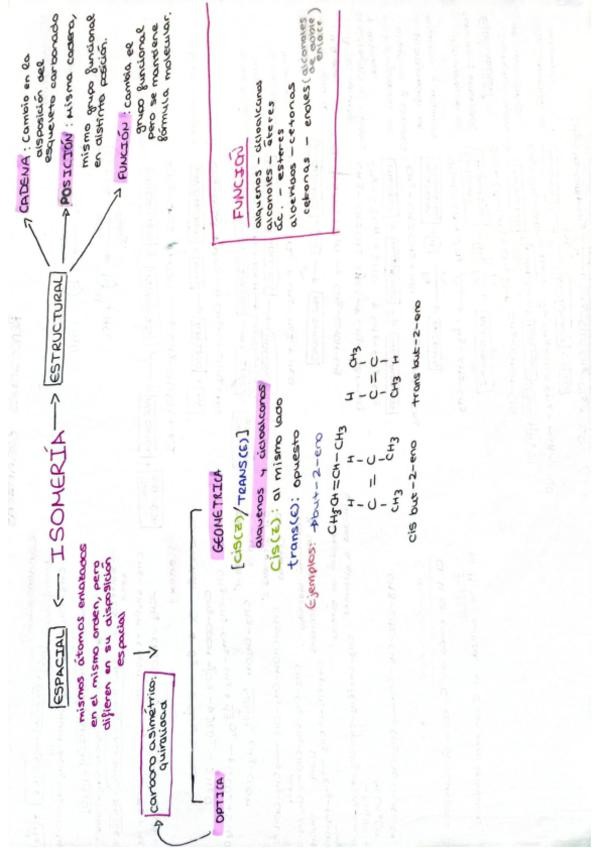 ISOMERÍA
ESPACIAL
mismos átomos enlazados
en el mismo orden, pero
difieren en su disposición
espacial
ESTRUCTURAL
CADENA: cambio en la
disposición del
esqueleto carbonado
POSICIÓN: Misma cadena,
mismo grupo funcional
en distinta posición.
FUNCIÓN: cambia el
grupo funcional
pero se mantiene
fórmula molecular.
carbono asimétrico:
quiralidad
OPTICA
GEOMÉTRICA
[cis(Z)/TRANS(E)]
alquenos y cicloalcanos
cis(Z): al mismo lado
trans(E): opuesto
Ejemplos: →but-2-eno
CH3CH=CH-CH3
H H
C = C
CH3 CH3
cis but-2-eno
H CH3
C = C
CH3 H
trans but-2-eno
FUNCIÓN
alquenos - cicloalcanos
alcoholes - éteres
ác. - esteres
aldehidos - cetonas
cetonas - enoles (alcoholes
de doble
enlace)